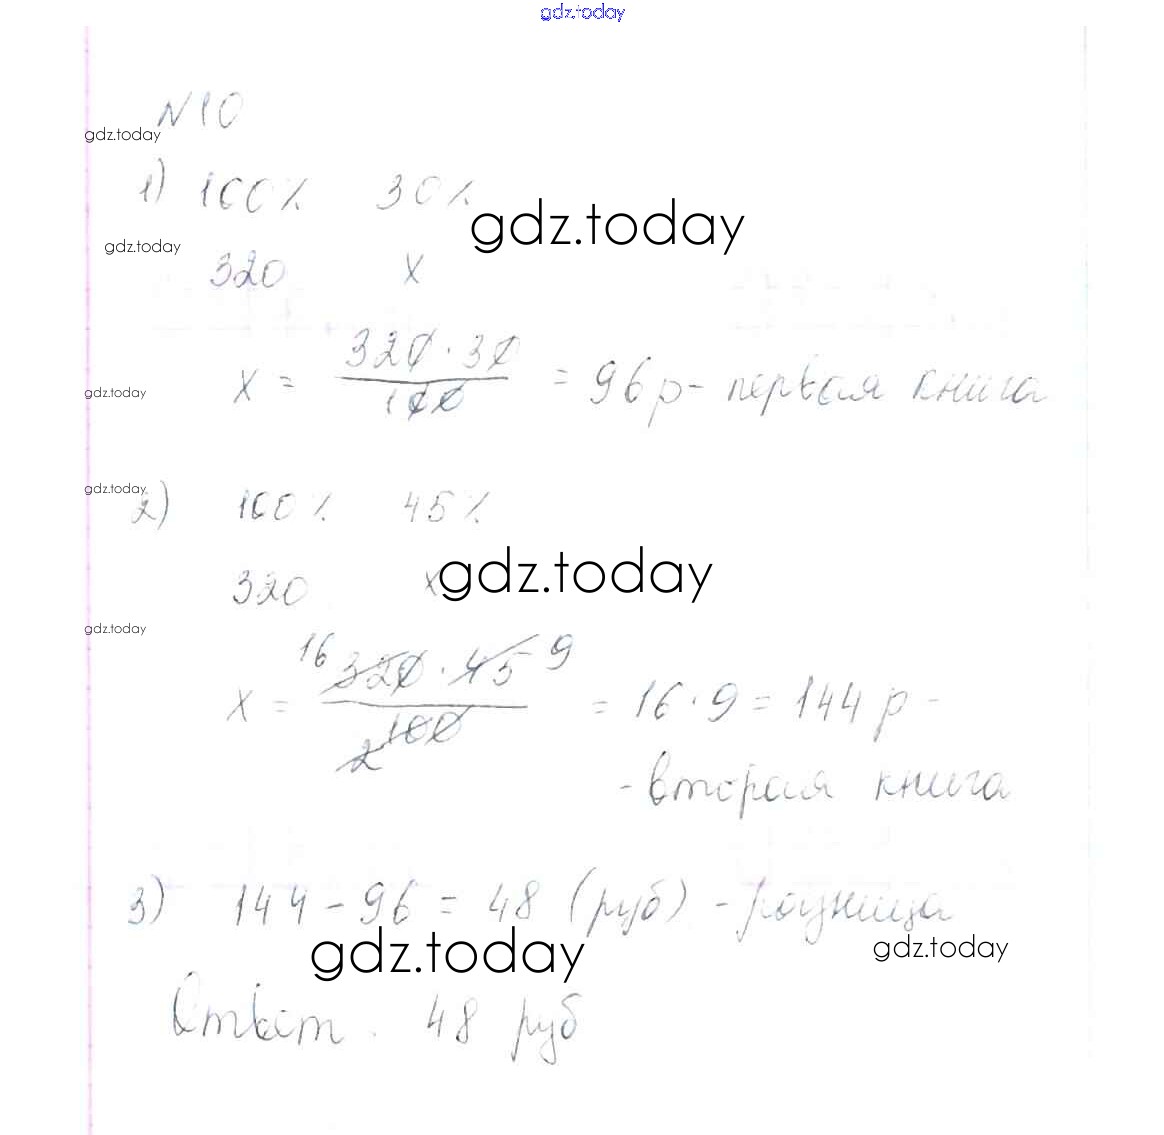 gdz.today
N10
gdz.today
1) 100% 30%
gdz.today
gdz.today
320 x
x = 320 · 30 / 100 = 96 р - первая книга
gdz.today
gdz.today
2) 100% 45%
320 x
gdz.today
gdz.today
16 320 · 45 9
x = / 2 100 = 16 · 9 = 144 р -
- вторая книга
3) 144 - 96 = 48 (руб) - разница
gdz.today
gdz.today
Ответ. 48 руб